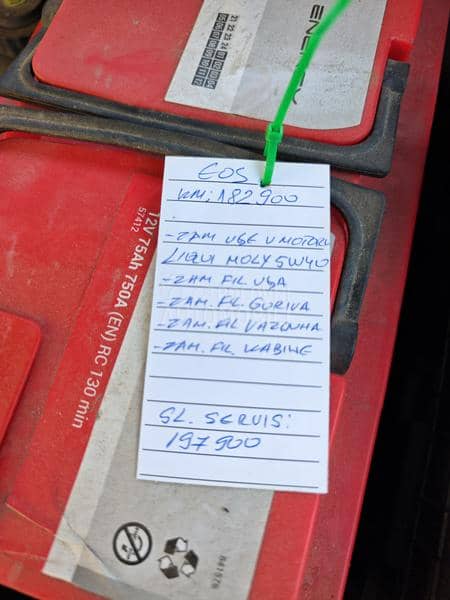 21 22 23 24
ENERGY
EOS
KM: 182.900
-ZAM ULJE U MOTORU
LIQUI MOLY 5W40
-ZAM FIL ULJA
-ZAM. FIL. GORIVA
-ZAM. FIL VAZDUHA
-ZAM. FIL. KABINE
SL. SERVIS:
197900
57412
12V 75Ah 750A (EN) RC 130 min